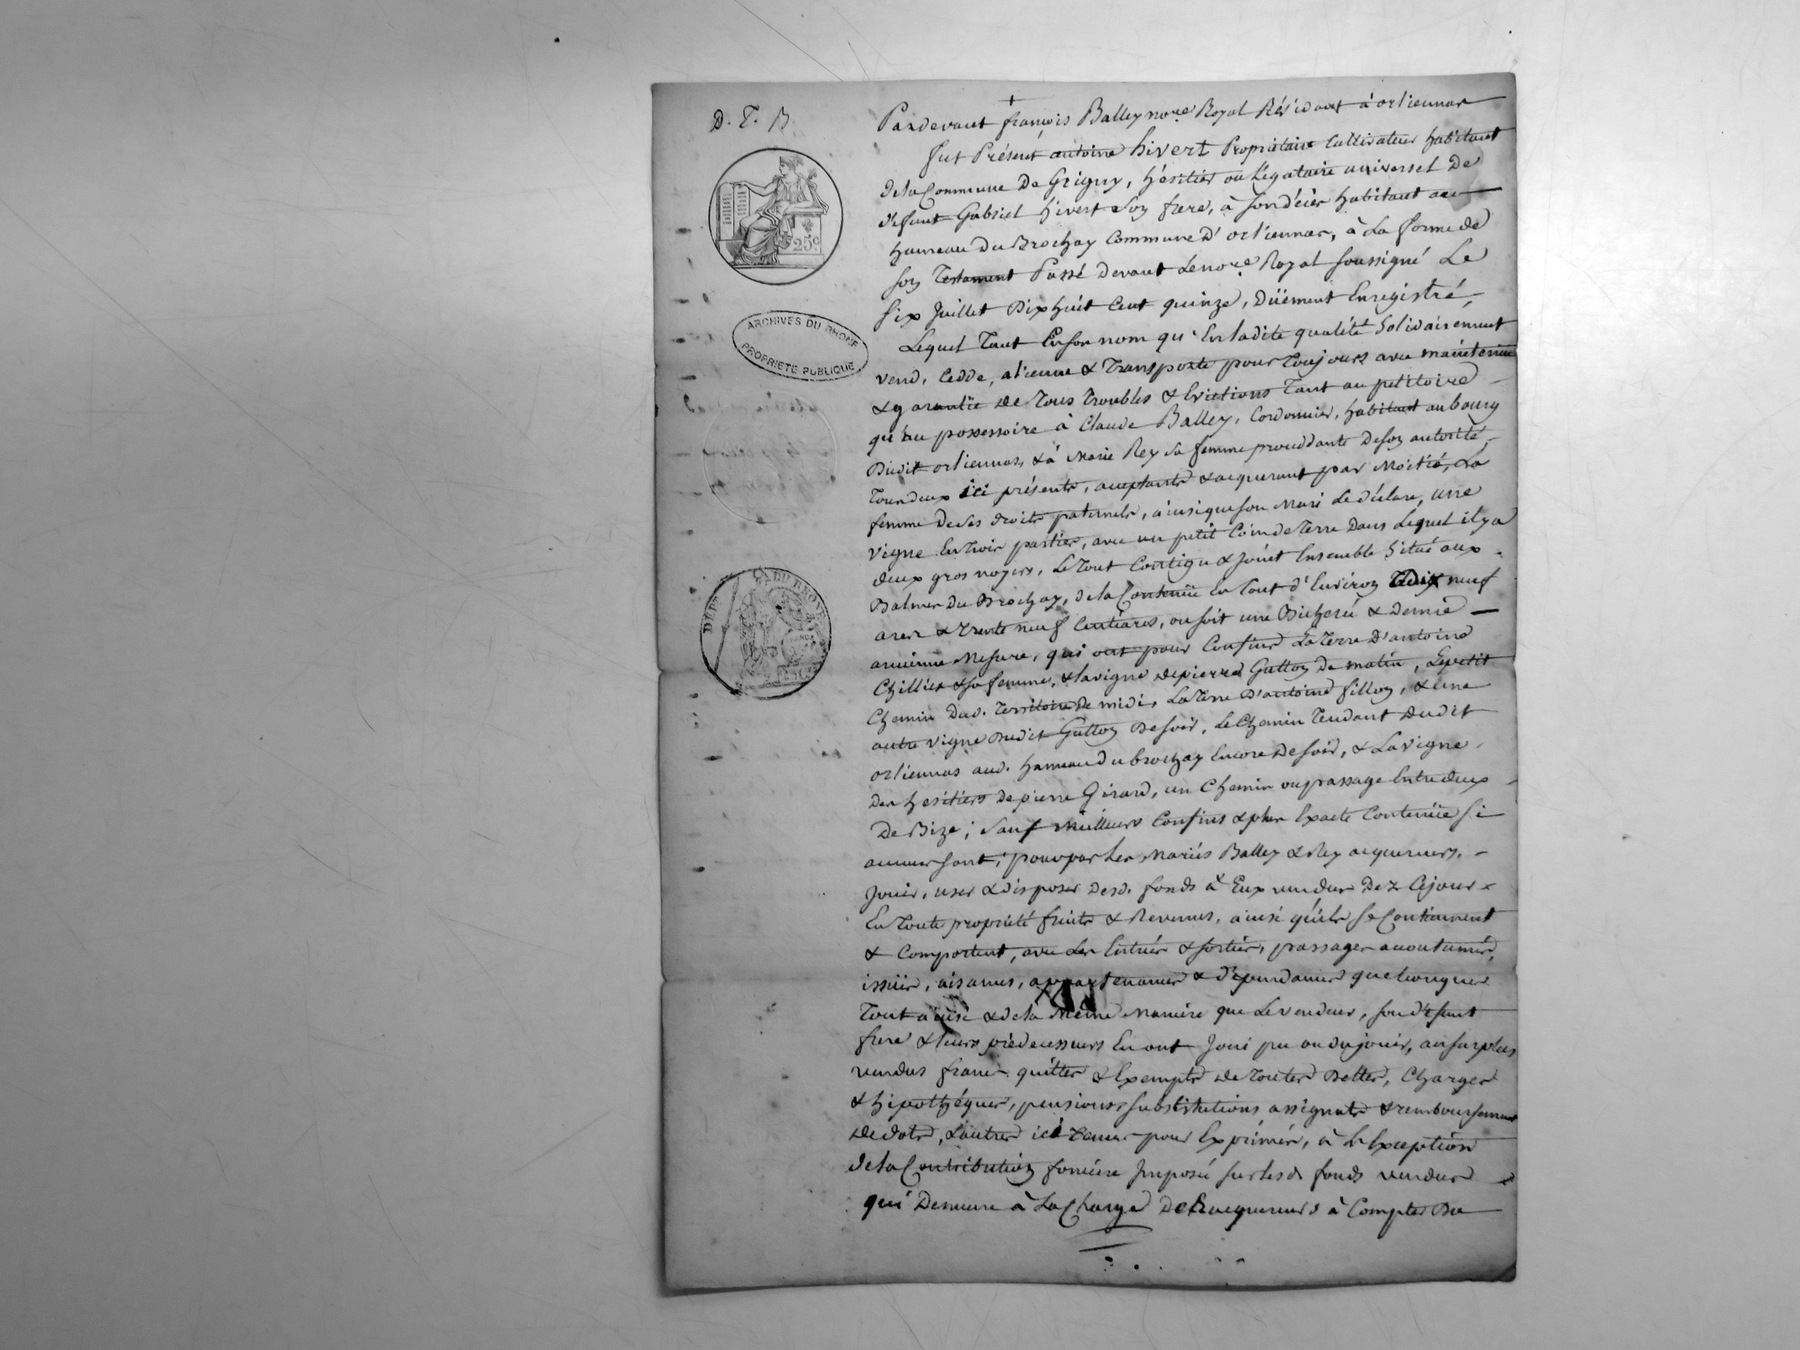 D. T. B.
25c
ARCHIVES DU RHONE
PROPRIETE PUBLIQUE
DEPT DU RHONE
Pardevant françois Balley nore Royal Résidant à orliennas
fut Présent antoine hivert Propriétaire Cultivateur habitant
de la Commune De Grigny, héritier ou Légataire universel De
défunt Gabriel hivert son frere, à son décès habitant au
hameau du Brochay Commune D'orliennas, à La forme de
son Testament Passé Devant Le nore Royal soussigné Le
six Juillet Dix huit Cent quinze, Düement Enregistré,
Lequel Tant En son nom qu'En ladite qualité Solidairement
vend, Cedde, aliene & Transporte pour Toujours avec maintenue
& garantie de Tous Troubles & Evictions Tant au petitoire
qu'au possessoire à Claude Balley, Cordonnier, habitant au bourg
Dudit orliennas, & à Marie Rey sa femme procédante De son autorité,
Tous deux ici présents, acceptants & acquerant par Moitié, La
femme de ses droits paternels, ainsi que son Mari Le déclare, une
vigne En Trois parties, avec un petit Coin de Terre Dans Lequel il y a
deux gros noyers, Le Tout Contigu & Joint Ensemble Situé aux
Balmes du Brochay, de la Contenüe En Tout d'Environ Dix neuf
ares & Trente neuf Centiares, ou soit une Bicherée & Demie
ancienne Mesure, qui ont pour Confins La Terre D'antoine
Chillet & sa femme, & la vigne de pierre Gutton de matin, Le petit
Chemin dud. Territoire de midi, La Terre D'antoine fillon, & une
autre vigne Dudit Gutton De soir, Le Chemin Tendant Dudit
orliennas aud. hameau du brochay Encore De soir, & La vigne
Des hesitiers de pierre Girard, un Chemin ou passage Entre deux
De Bize; Sauf Meilleurs Confins & plus Exacte Contenüe si
aucuns sont; pour par Les Mariés Balley & Rey acquereurs,
Jouir, user & disposer desd. fonds à Eux vendus Dez Cejour
En Toute propriété fruits & Revenus, ainsi qu'ils se Contiennent
& Comportent, avec Les Entrées & sorties, passages accoutumés,
issües, aisances, appartenances & dépendances quelconques
Tout ainsi & de la Même Maniere que Le vendeur, son défunt
frere & leurs prédecesseurs En ont Joui pu ou du jouir, au surplus
vendus francs quittes & Exempts de Toutes Dettes, Charges
& hipothéques, pensions substitutions assignats & remboursements
de dots, & autres ici Tenus pour Exprimés, à L'Exception
de la Contribution fonciere Imposée sur lesd. fonds vendus
qui Demeure à La Charge Des acquereurs à Compter Du